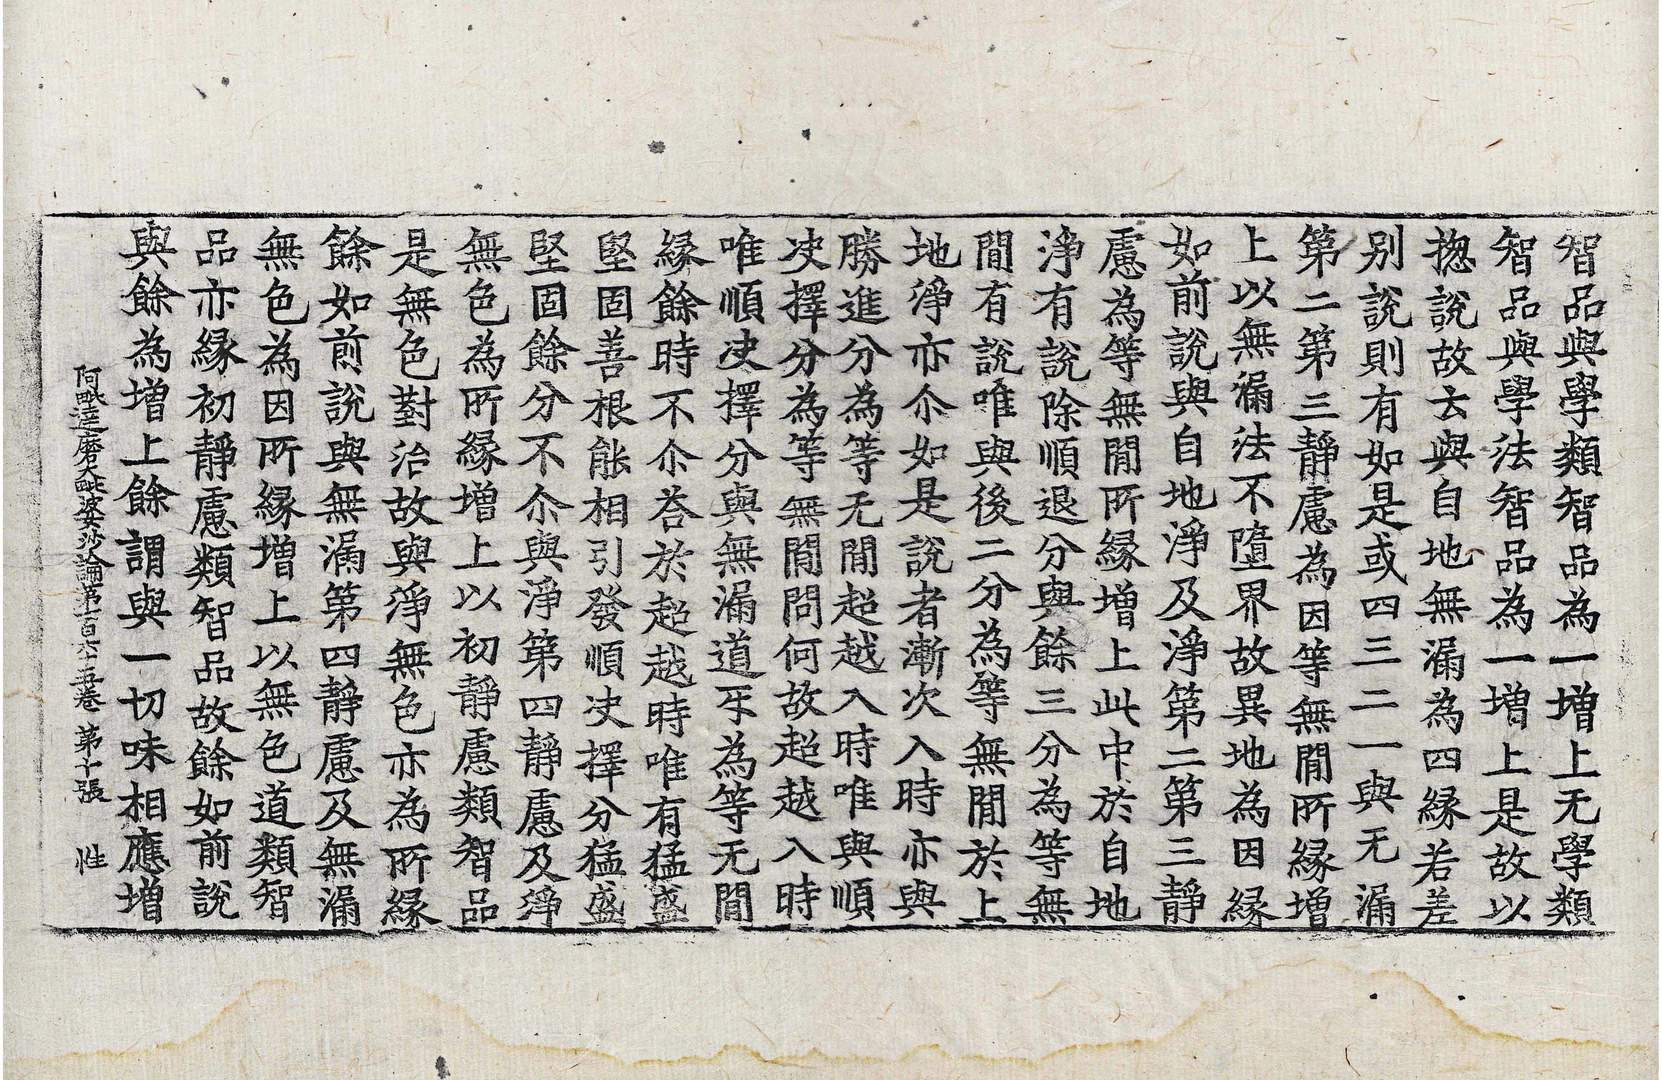 智品與學類智品為一增上无學類
智品與學法智品為一增上是故以
揔說故云與自地無漏為四緣若差
别說則有如是或四三二一與无漏
第二第三靜慮為因等無間所緣增
上以無漏法不墮界故異地為因緣
如前說與自地淨及淨第二第三靜
慮為等無間所緣增上此中於自地
淨有說除順退分與餘三分為等無
間有說唯與後二分為等無間於上
地淨亦尒如是說者漸次入時亦與
勝進分為等无間超越入時唯與順
决擇分為等無間問何故超越入時
唯順决擇分與無漏道牙為等无間
緣餘時不尒荅於超越時唯有猛盛
堅固善根能相引發順决擇分猛盛
堅固餘分不尒與淨第四靜慮及淨
無色為所緣增上以初靜慮類智品
是無色對治故與淨無色亦為所緣
餘如前說與無漏第四靜慮及無漏
無色為因所緣增上以無色道類智
品亦緣初靜慮類智品故餘如前說
與餘為增上餘謂與一切味相應增
阿毗達磨大毗婆沙論第一百六十五卷 第十張 性